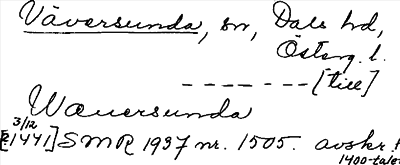 Väversunda, sn, Dals hd,
Österg. l.
- - - - - - - [till]
Wæuersunda
3/12
[1441] SMR 1937 nr. 1505. avskr. f.
1400-talet